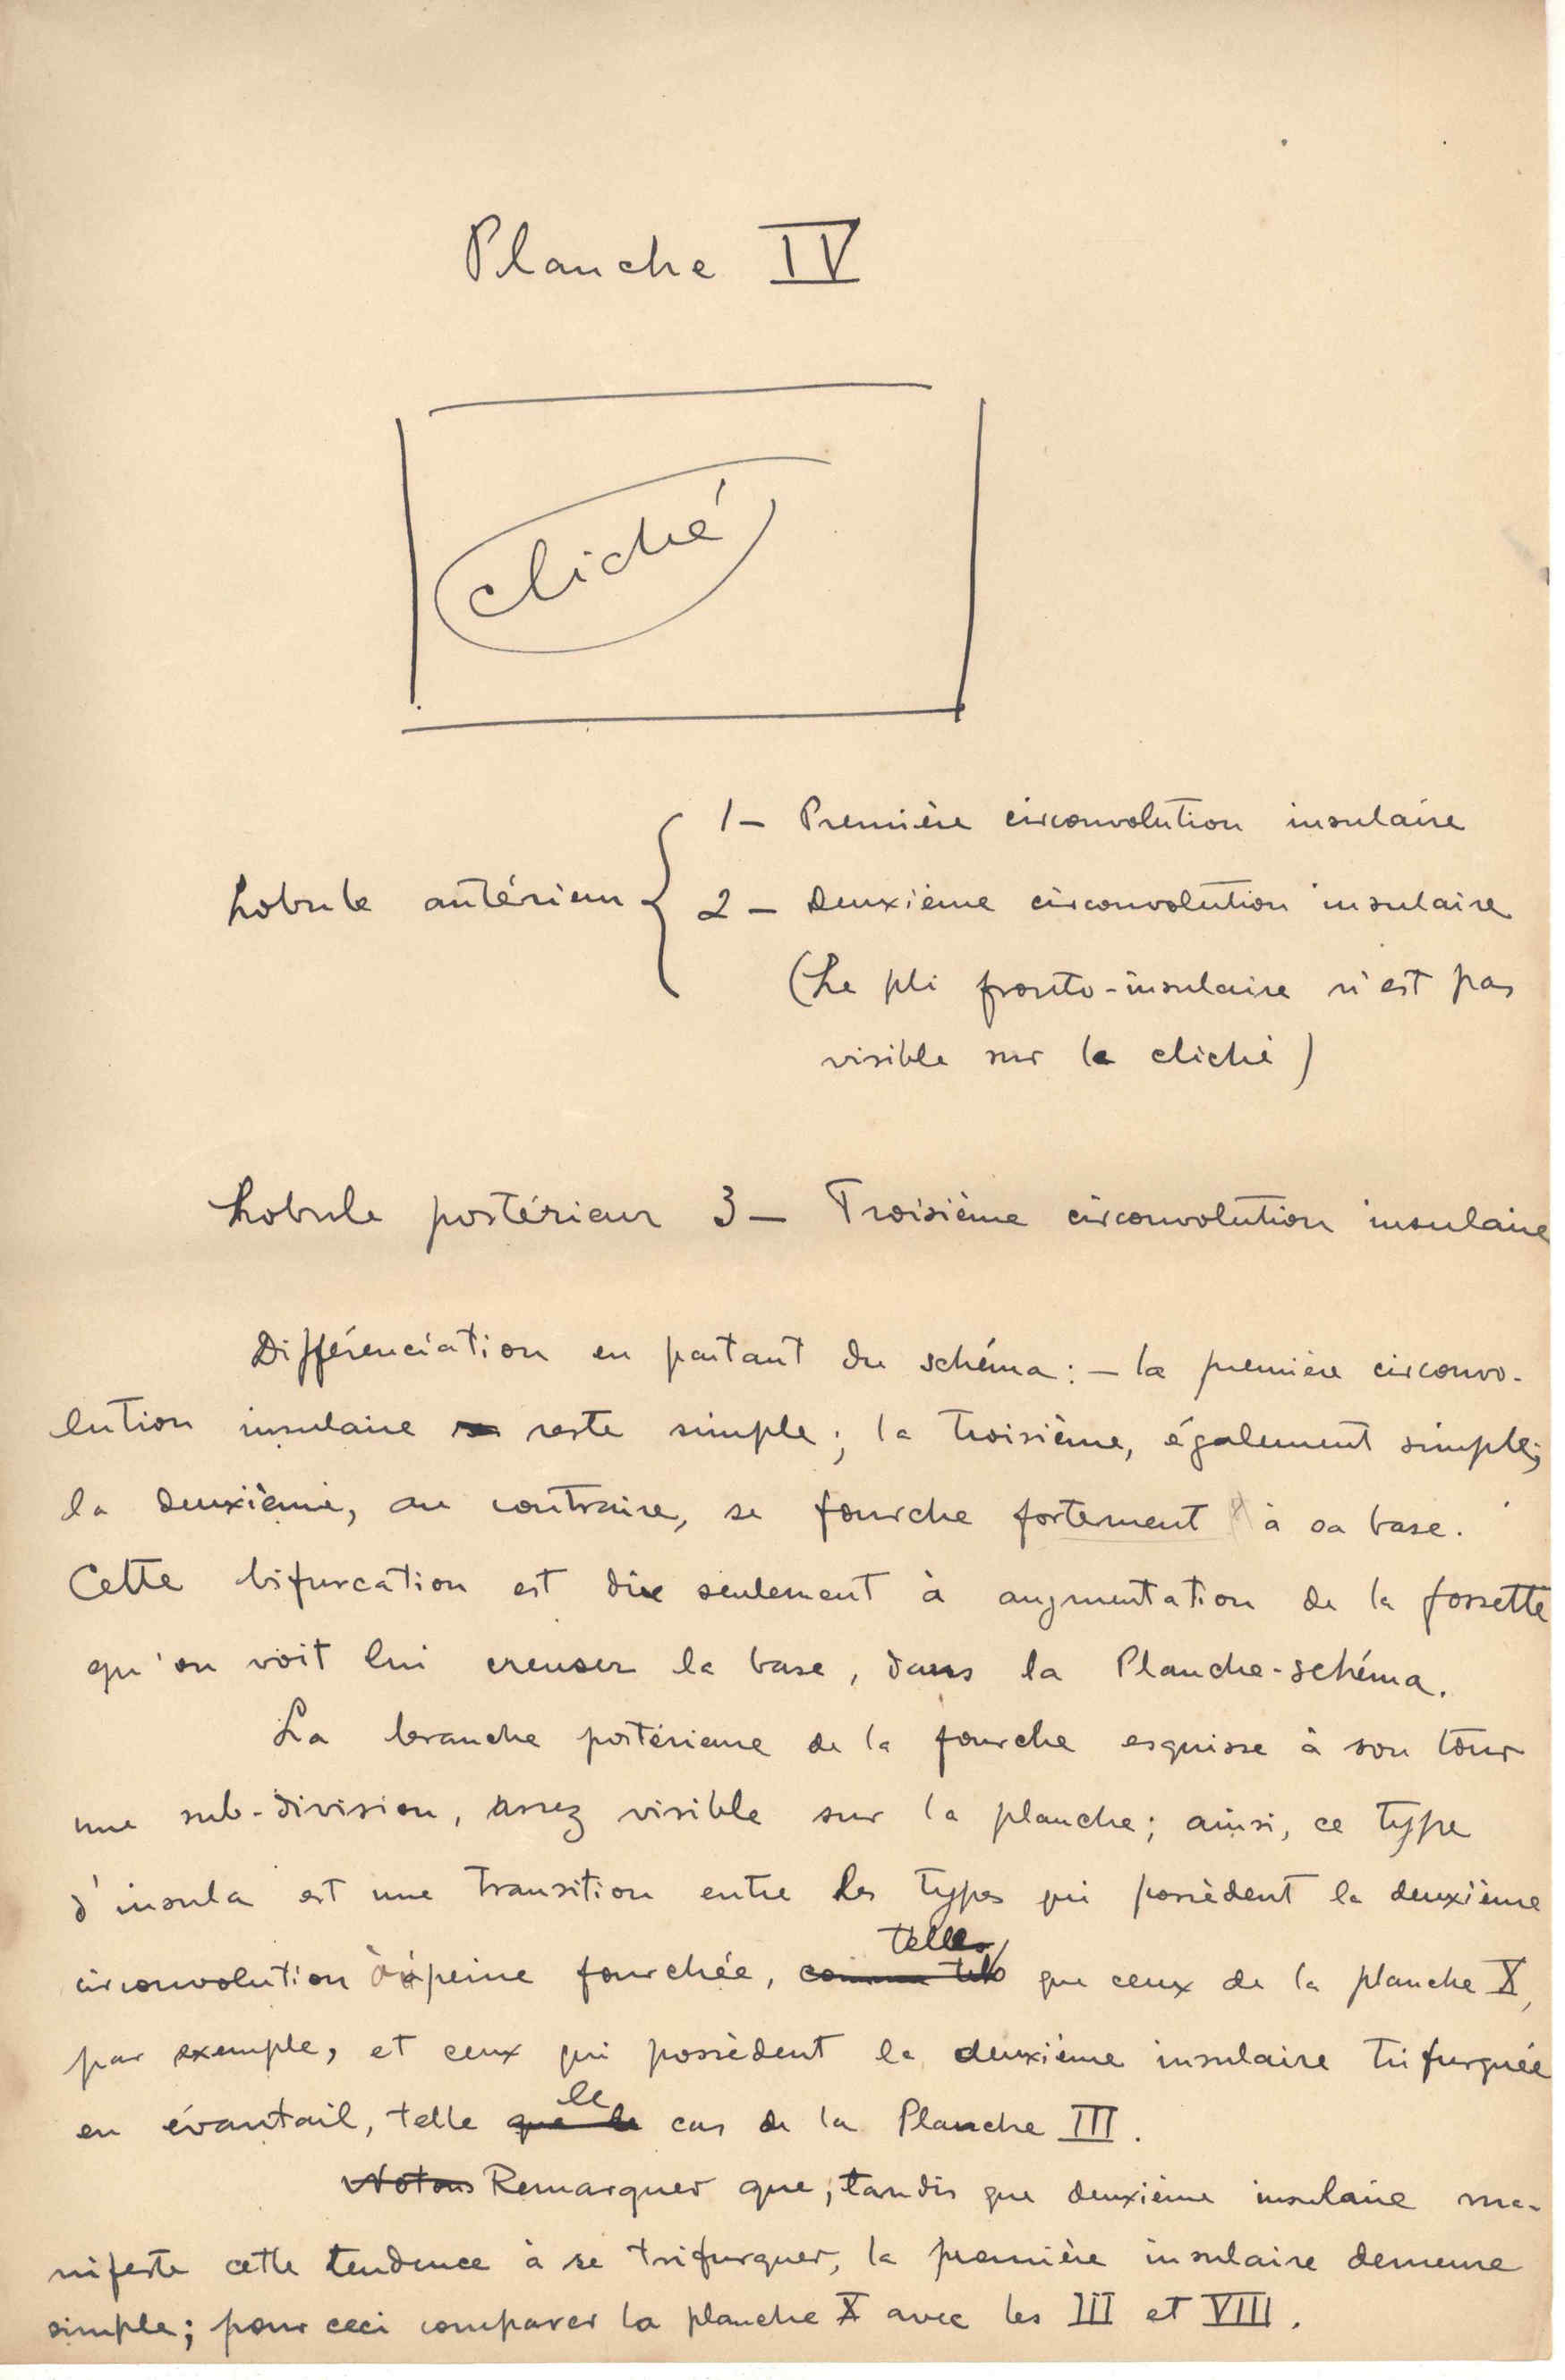 Planche IV
cliché
1 - Première circonvolution insulaire
Lobule antérieur { 2 - Deuxième circonvolution insulaire
(Le pli fronto-insulaire n'est pas
visible sur le cliché)
Lobule postérieur 3 - Troisième circonvolution insulaire
Différenciation en partant du schéma: - la première circonvo-
lution insulaire reste simple; la troisième, également simple;
la deuxième, au contraire, se fourche fortement à sa base.
Cette bifurcation est due seulement à augmentation de la fossette
qu'on voit lui creuser la base, dans la Planche-schéma.
La branche postérieure de la fourche esquisse à son tour
une sub-division, assez visible sur la planche; ainsi, ce type
d'insula est une transition entre les types qui possèdent la deuxième
telles
circonvolution à peine fourchée, comme tels que ceux de la planche X,
par exemple, et ceux qui possèdent la deuxième insulaire trifurquée
le
en évantail, telle que le cas de la Planche III.
Notons Remarquer que, tandis que deuxième insulaire ma-
nifeste cette tendence à se trifurquer, la première insulaire demeure
simple; pour ceci comparer la planche X avec les III et VIII.